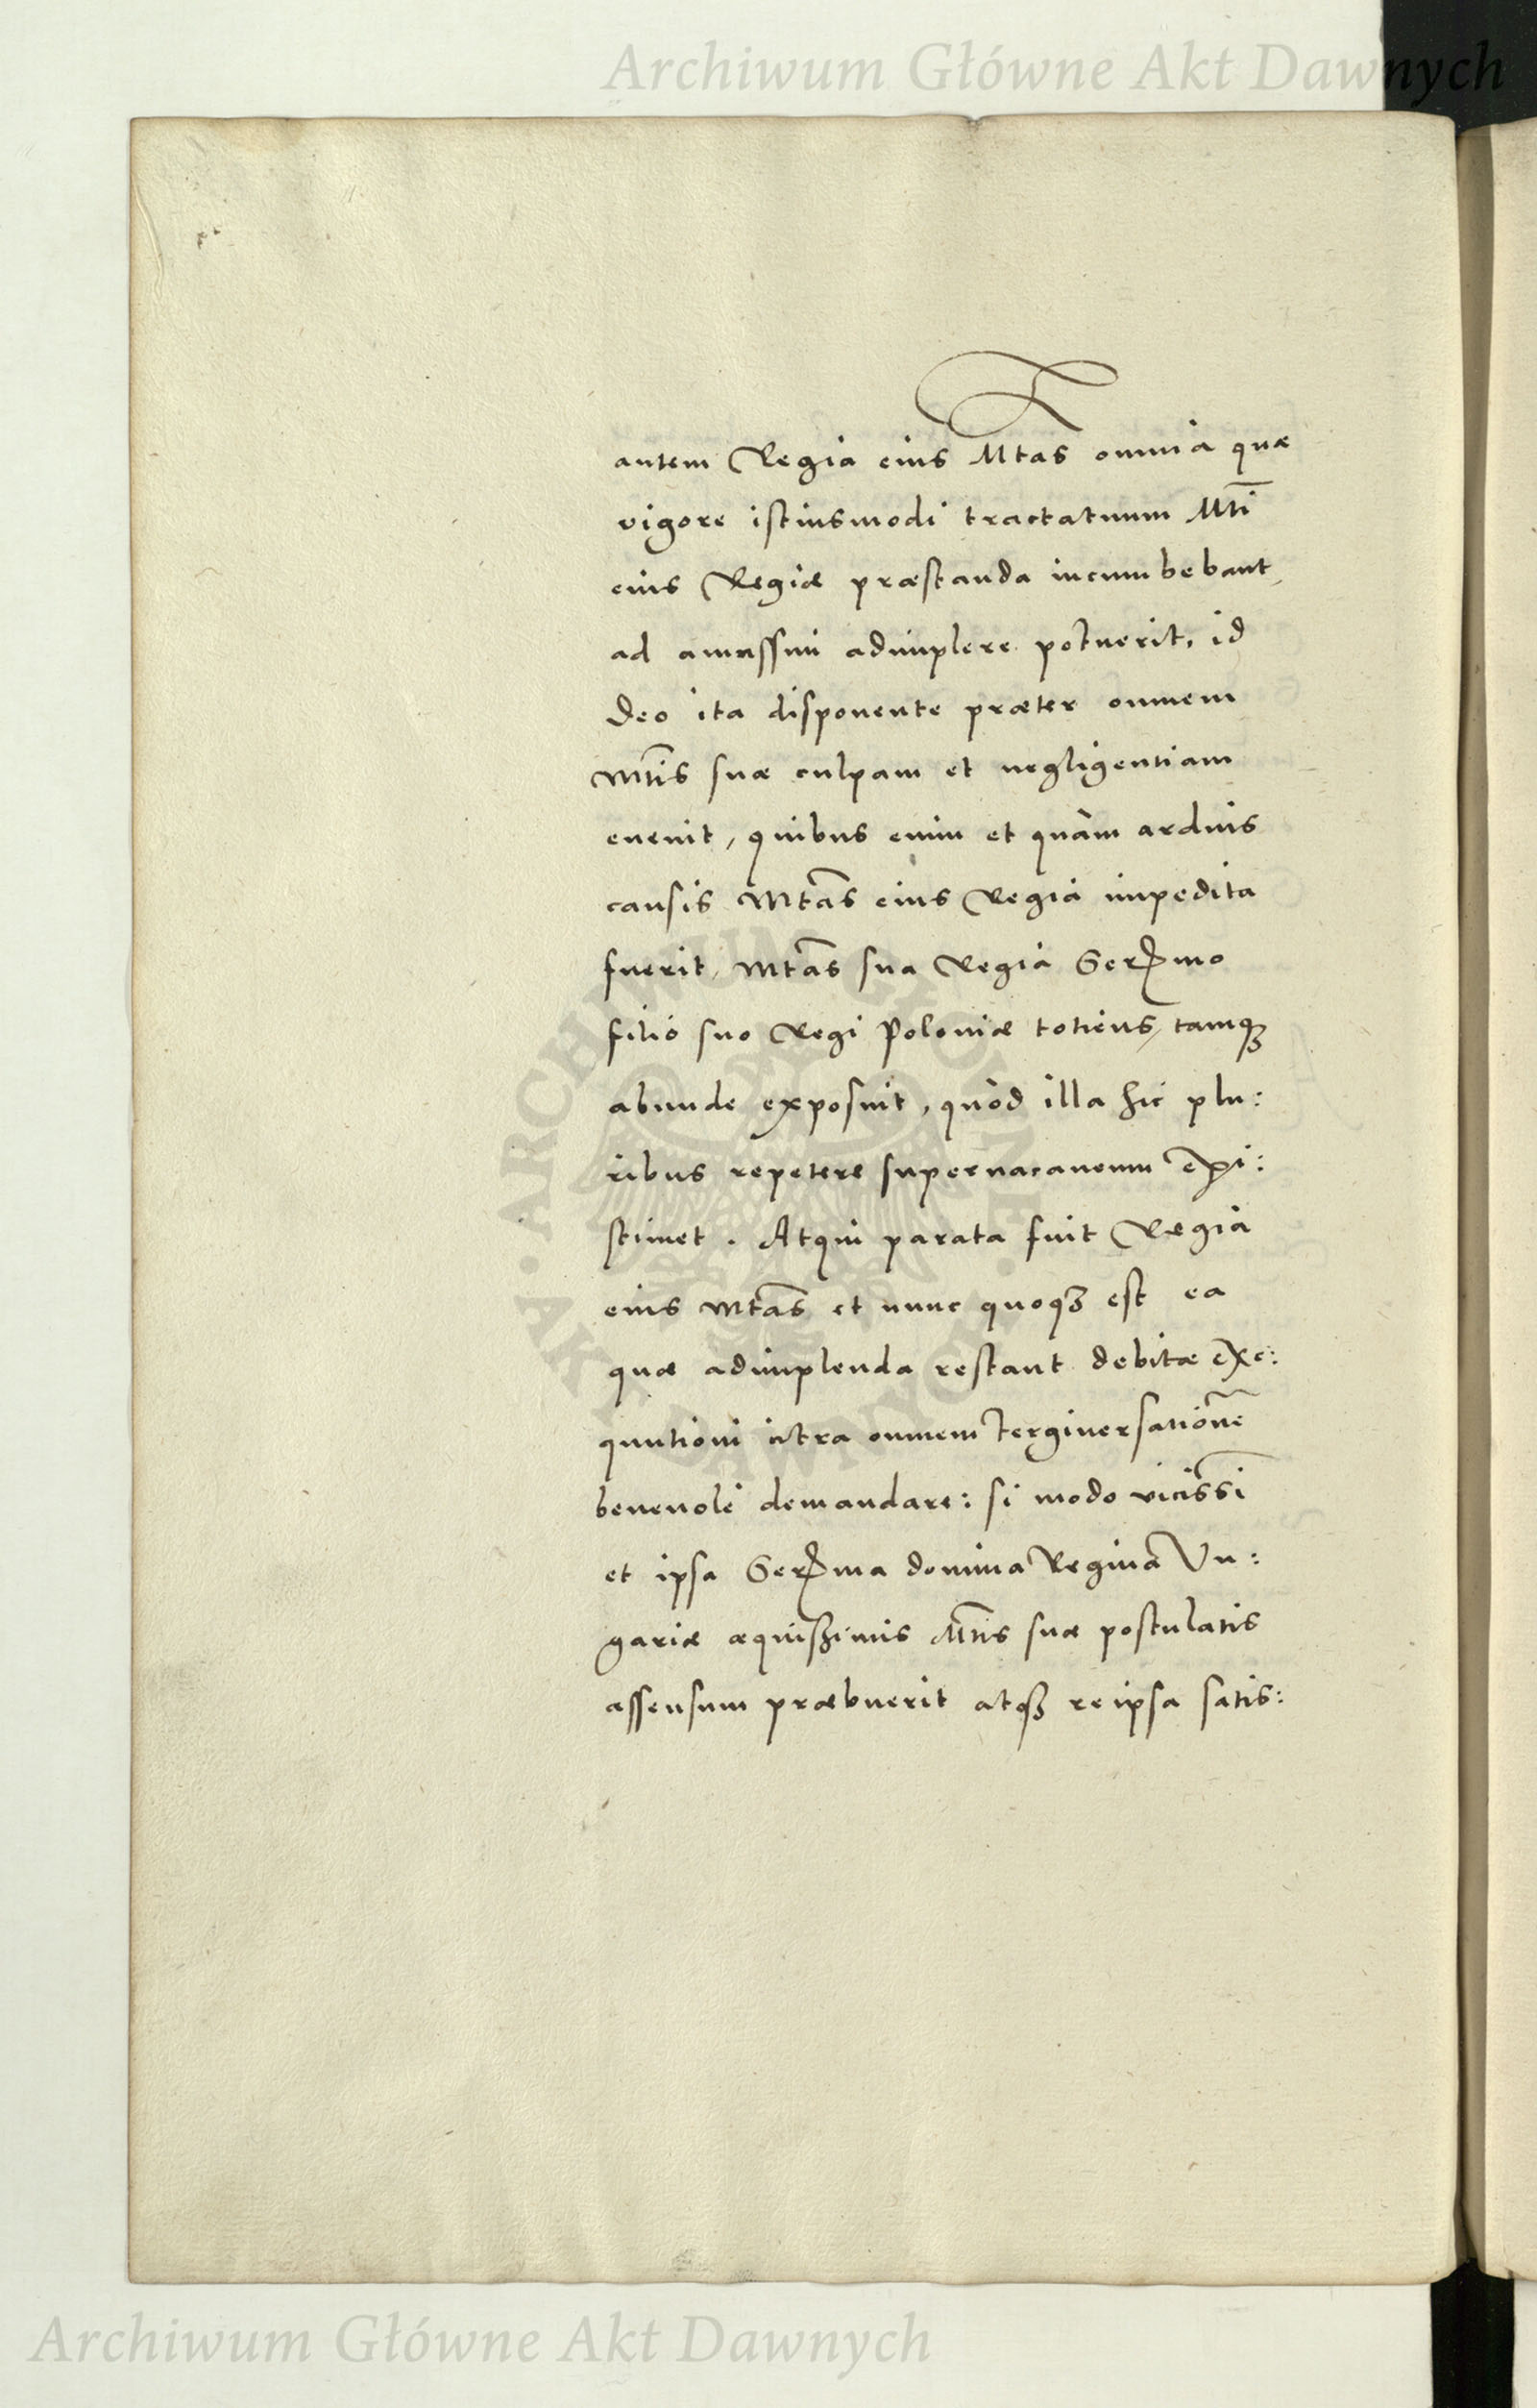 Archiwum Główne Akt Dawnych
autem Regia eius Mtas omnia quæ
vigore istiusmodi tractatuum Mti̅
eius Regiæ præstanda incumbebant,
ad amussim adimplere potuerit, id
Deo ita disponente præter omnem
Mti̅s suæ culpam et negligentiam
euenit, quibus enim et quàm arduis
causis Mta̅s eius Regia impedita
fuerit, Mta̅s sua Regia Serꝰmo
filio suo Regi Poloniæ totiens, tamqꝫ
abunde exposuit, quòd illa hic plu:
ribus repetere superuacaneum exi:
stimet. Atqui parata fuit Regia
eius Mta̅s et nunc quoqꝫ est ea
quæ adimplenda restant debitæ exe:
quutioni citra omnem tergiuersationē
beneuolè demandare: si modo vicissī
et ipsa Serꝰma domina Regina Vn:
gariæ æquissimis Mti̅s suæ postulatis
assensum præbuerit atqꝫ reipsa satis:
ARCHIWUM GŁÓWNE
AKT DAWNYCH
Archiwum Główne Akt Dawnych